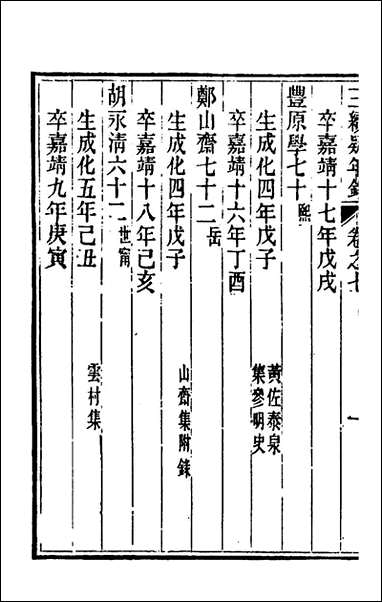 三續疑年錄 卷之七 一
卒嘉靖十七年戊戌
豐原學七十 熙
生成化四年戊子 黃佐泰泉集參明史
卒嘉靖十六年丁酉
鄭山齋七十二 岳
生成化四年戊子 山齋集附錄
卒嘉靖十八年己亥
胡永清六十二 世甯
生成化五年己丑 雲村集
卒嘉靖九年庚寅